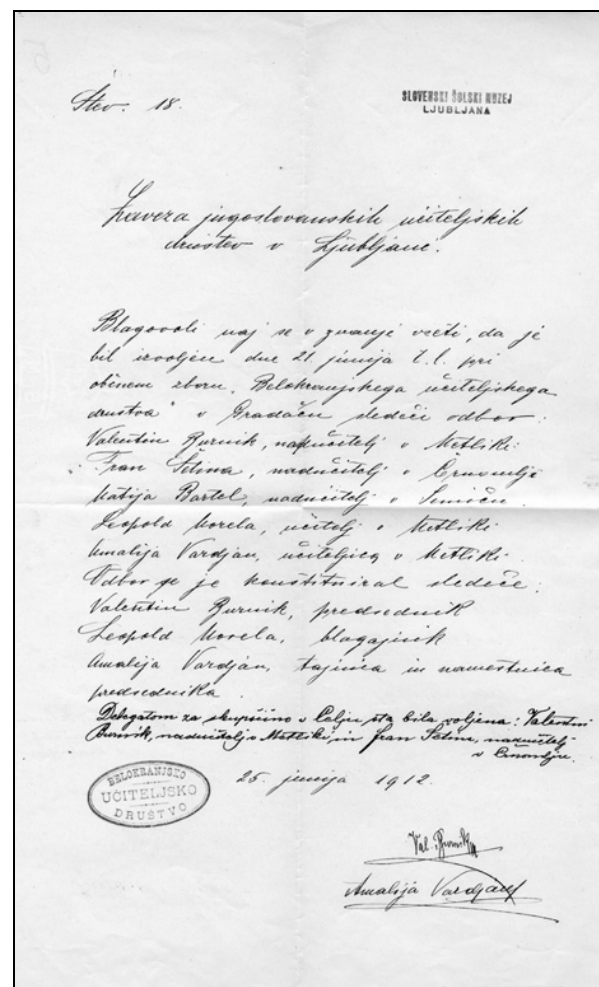 Štev. 18.
SLOVENSKI ŠOLSKI MUZEJ
LJUBLJANA
Zaveza jugoslovanskih učiteljskih
društev v Ljubljani.
Blagovoli naj se v znanje vzeti, da je
bil izvoljen dne 21. junija t. l. pri
občnem zboru „Belokranjskega učiteljskega
društva" v Gradacu sledeči odbor:
Valentin Burnik, nadučitelj v Metliki.
Fran Šetina, nadučitelj v Črnomlju
Matija Bartel, nadučitelj v Semiču.
Leopold Morela, učitelj v Metliki
Amalija Vardjan, učiteljica v Metliki.
Odbor se je konštituiral sledeče:
Valentin Burnik, predsednik
Leopold Morela, blagajnik
Amalija Vardjan, tajnica in namestnica
predsednika.
Delegatom za skupščino v Celju sta bila voljena: Valentin
Burnik, nadučitelj v Metliki, in Fran Šetina, nadučitelj
v Črnomlju.
25. junija 1912.
BELOKRANJSKO
UČITELJSKO
DRUŠTVO
Val. Burnik
Amalija Vardjan